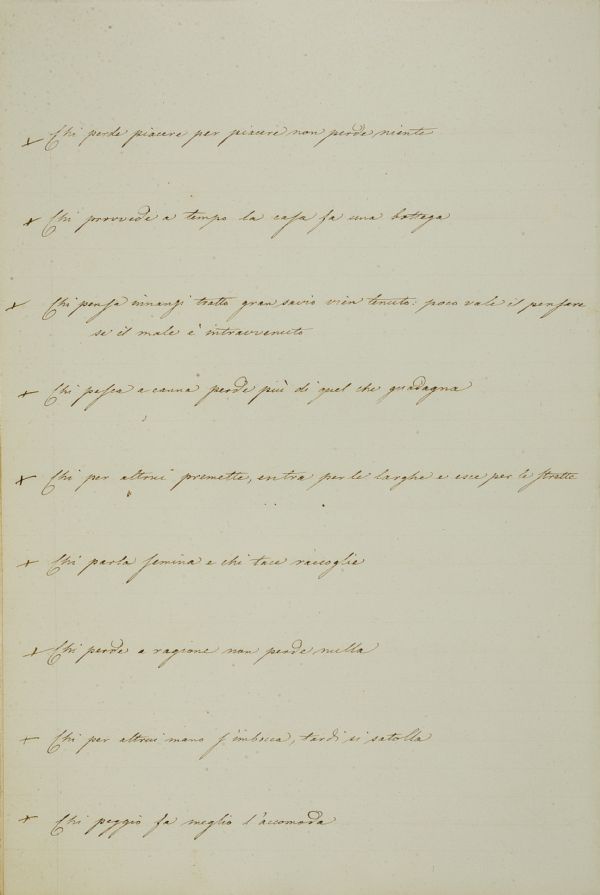 Chi perde piacere per piacere non perde niente
Chi provvede a tempo la casa fa una bottega
Chi pensa innanzi tratto gran savio vien tenuto: poco vale il pensare
se il male è intravvenuto
Chi pesca a canna perde più di quel che guadagna
Chi per altrui promette, entra per le larghe e esce per le strette
Chi parla semina e chi tace raccoglie
Chi perde a ragione non perde nulla
Chi per altrui mano s'imbocca, tardi si satolla
Chi peggio fa meglio l'accomoda